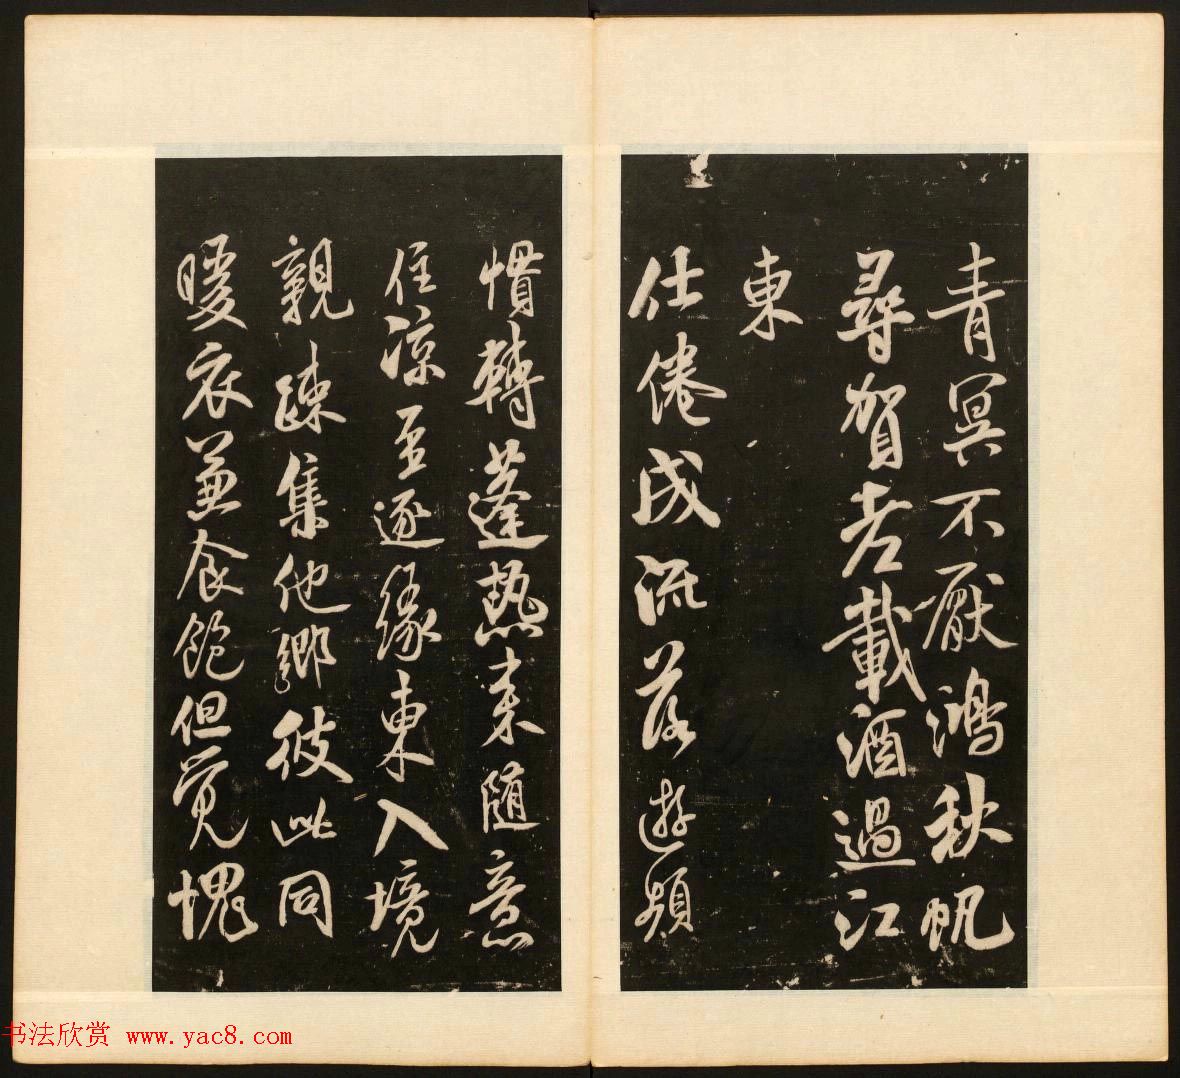 青冥不厭鴻秋帆
尋賀老載酒過江
東
仕倦成流落遊頻
慣轉蓬熱来随意
住涼至逐緣東入境
親疎集他鄉彼此同
暖衣兼食飽但覚愧
书法欣赏 www.yac8.com